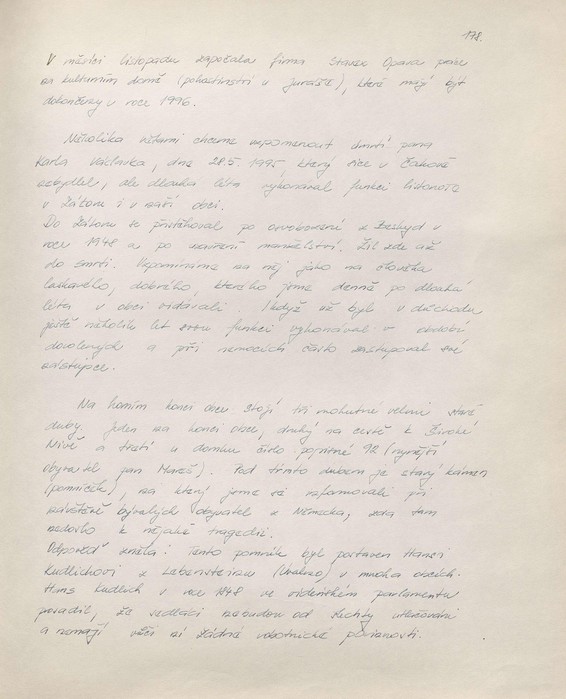 178.
V měsíci listopadu započala firma Stavex Opava práce
na kulturním domě (pohostinství u Juráště), které mají být
dokončeny v roce 1996.
Několika větami chceme vzpomenout úmrtí pana
Karla Václavka, dne 28.5 1995, který sice v Čakově
nebydlel, ale dlouhá léta vykonával funkci listonoše
v Zátoru i v naší obci.
Do Zátoru se přistěhoval po osvobození z Beskyd v
roce 1948 a po uzavření manželství. Žil zde až
do smrti. Vzpomínáme na něj jako na člověka
laskavého, dobrého, kterého jsme denně po dlouhá
léta v obci vídávali. I když už byl v důchodu
ještě několik let svou funkci vykonával v období
dovolených a při nemocích často zastupoval své
nástupce.
Na horním konci obce stojí tři mohutné velmi staré
duby. Jeden na konci obce, druhý na cestě k Široké
Nivě a třetí u domku číslo popisné 92 (nynější
obyvatel pan Mareš). Pod tímto dubem je starý kámen
(pomníček), na který jsme se informovali při
návštěvě bývalých obyvatel z Německa, zda tam
nedošlo k nějaké tragedii.
Odpověď zněla: Tento pomník byl postaven Hansi
Kudlichovi z Lobensteinu (Úvalno) v mnoha obcích.
Hans Kudlich v roce 1848 ve vídeňském parlamentu
poradil, že sedláci nebudou od šlechty utlačováni
a nemají vůči ní žádné robotnické povinnosti.